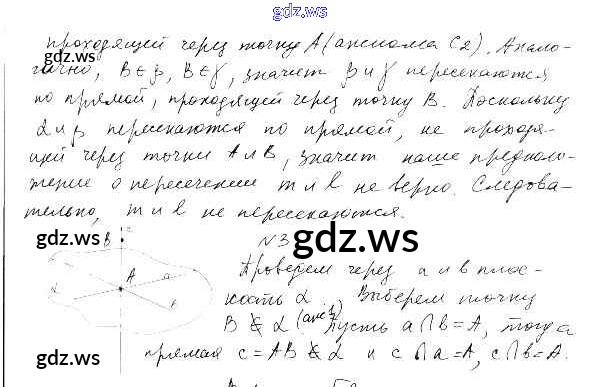 gdz.ws
проходящей через точку A (аксиома C2). Анало-
гично, B ∈ β, B ∈ γ, значит β и γ пересекаются
по прямой, проходящей через точку B. Поскольку
α и β пересекаются по прямой, не проходя-
щей через точки A и B, значит наше предполо-
жение о пересечении m и l не верно. Следова-
тельно, m и l не пересекаются.
gdz.ws
B
N 3
gdz.ws
α
A
a
в
Проведем через a и в плос-
кость α. Выберем точку
B ∉ α (акс 1). Пусть a ∩ b = A, тогда
прямая c = AB ⊄ α и c ∩ a = A, c ∩ b = A.
gdz.ws
gdz.ws